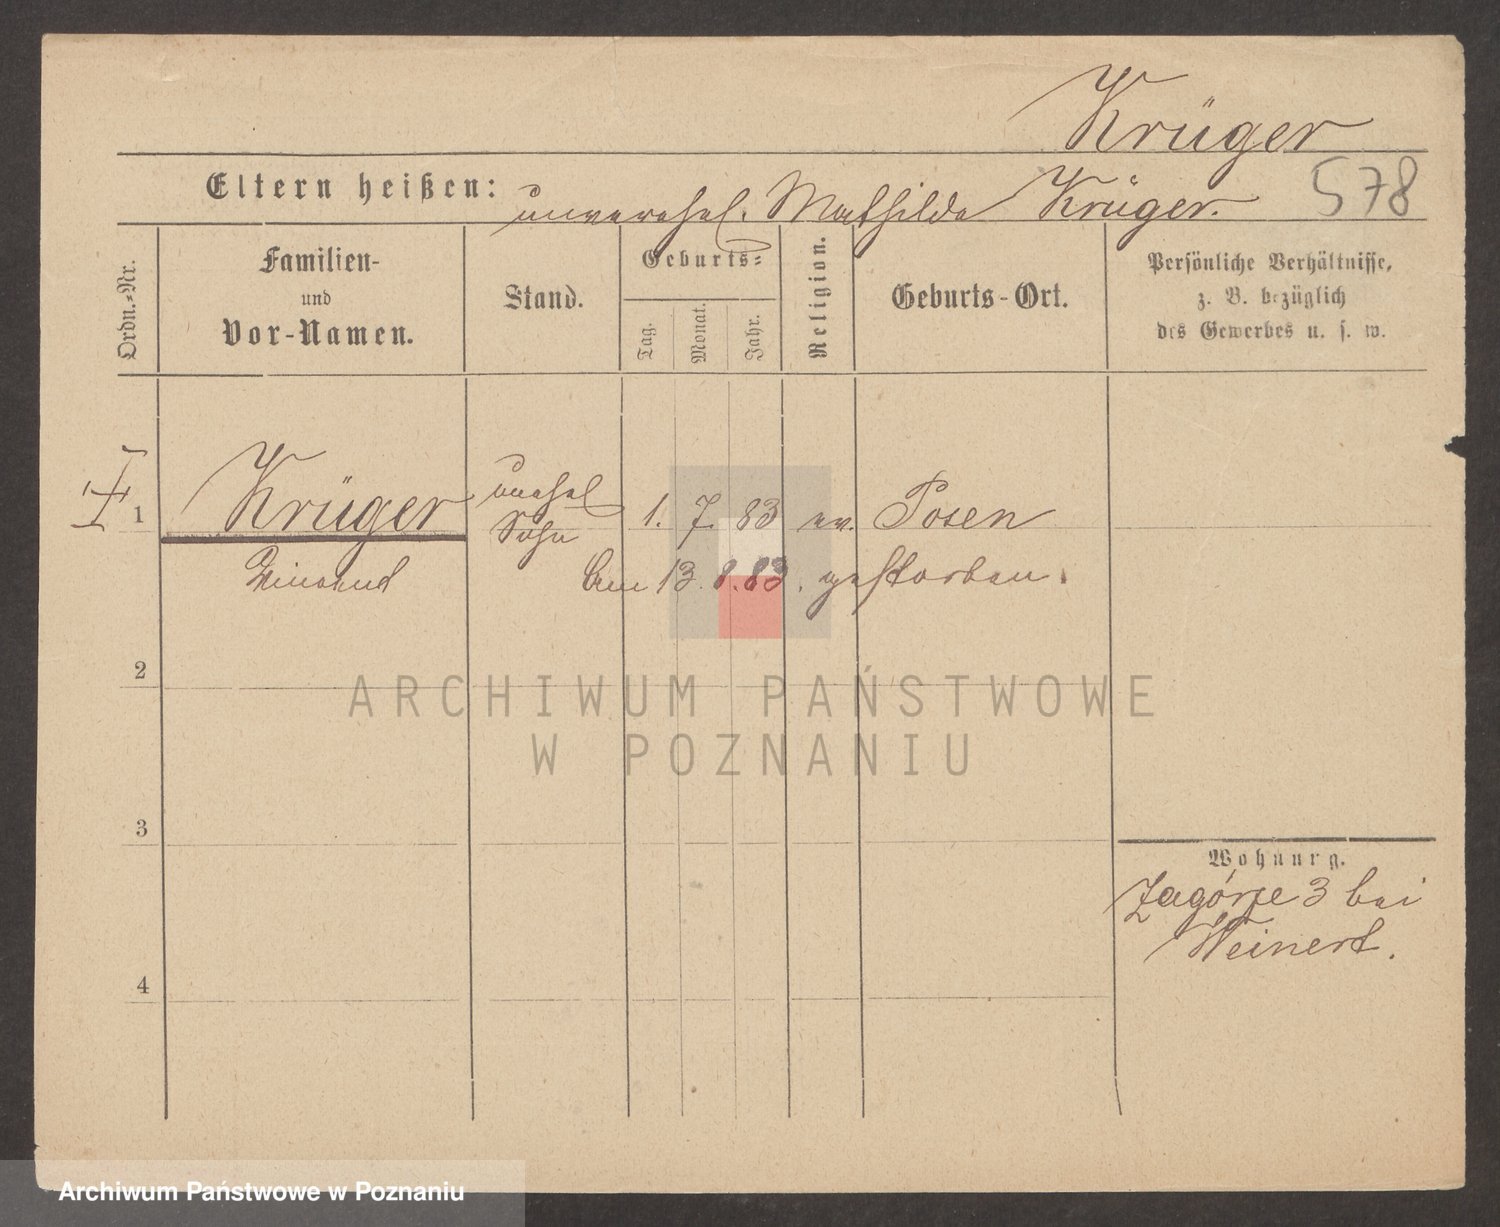 Krüger
Eltern heißen: unverehel. Mathilde Krüger. 578
Ordn.=Nr.
Familien-
und
Vor-Namen.
Stand.
Geburts=
Tag.
Monat.
Jahr.
Religion.
Geburts-Ort.
Persönliche Verhältnisse,
z. B. bezüglich
des Gewerbes u. s. w.
1 Krüger unehel Sohn 1. 7. 83 ev. Posen
am 13. 8. 83. gestorben.
2
3
4
Wohnung.
Zagórze 3 bei
Weinert.
ARCHIWUM PAŃSTWOWE
W POZNANIU
Archiwum Państwowe w Poznaniu